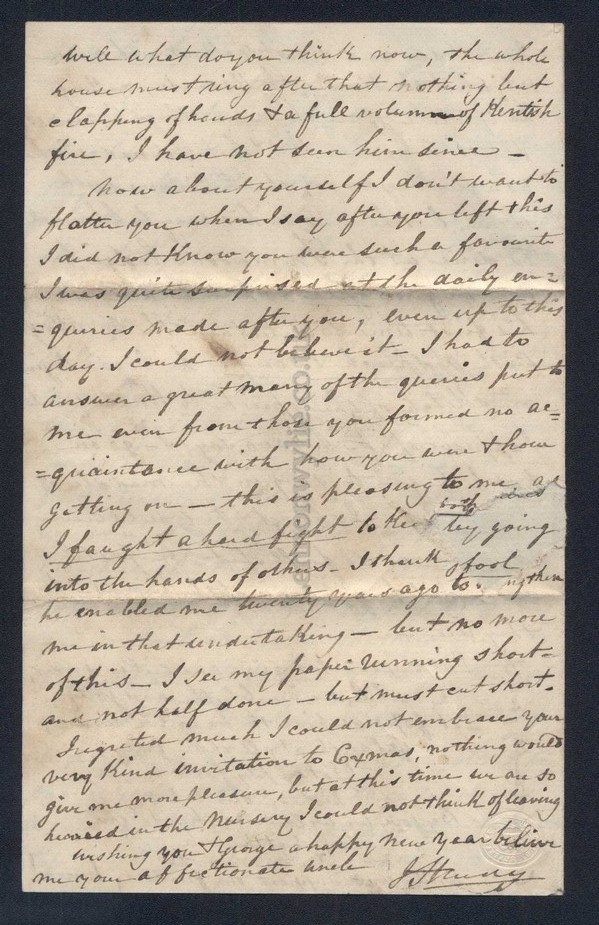 well what do you think now, the whole
house must ring after that nothing but
clapping of hands & a full volumn of Kentish
fire, I have not seen him since —
now about yourself I don't want to
flatter you when I say after you left this
I did not Know you were such a favourite
I was quite surprised at the daily en=
=quiries made after you, even up to this
day. I could not believe it — I had to
answer a great many of the queries put to
me even from those you formed no ac=
=quaintance with how you were & how
getting on — this is pleasing to me, as
I faught a hard fight to both by going
into the hands of others — I thank
he enabled me twenty years ago to then
me in that undertaking — but no more
of this — I see my paper running short —
and not half done — but must cut short —
I regreted much I could not embrace your
very Kind invitation to Cxmas, nothing would
give me more pleasure, but at this time we are so
in the Nursery I could not think of leaving
wishing you & George a happy new year believe
me your affectionate uncle